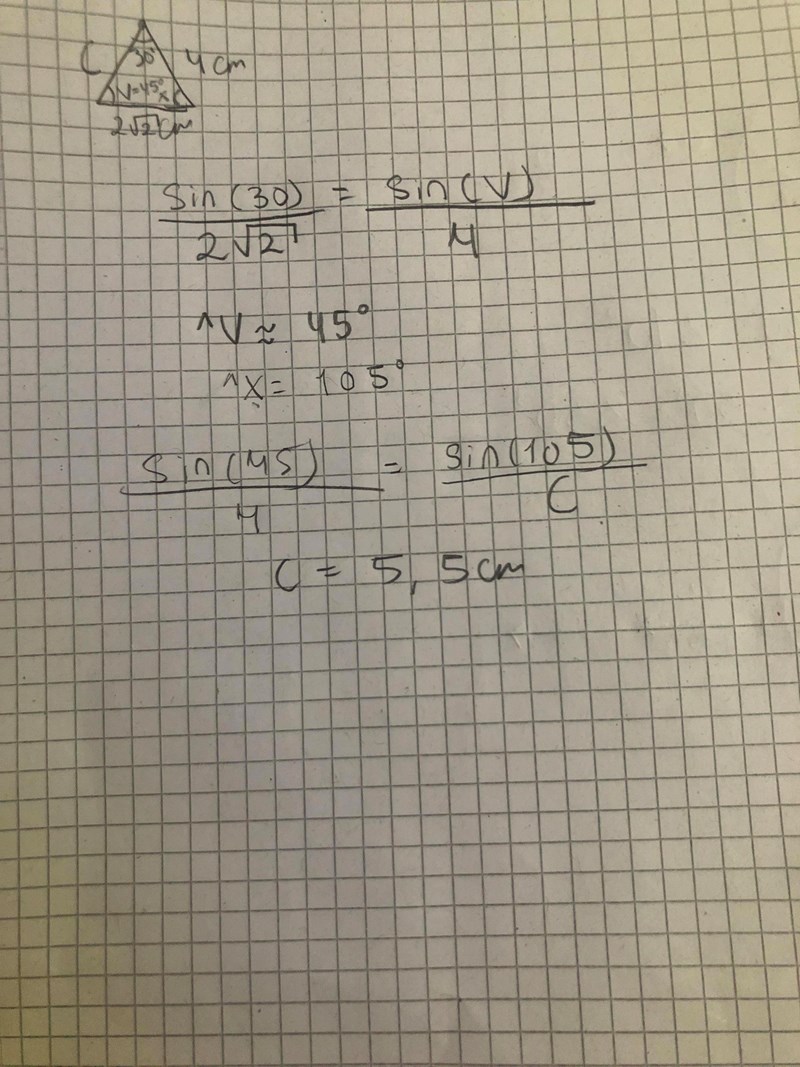 C 30° 4 cm
V=45° x
2√2 cm
sin(30) = sin(V)
2√2 4
^V ≈ 45°
^x = 105°
sin(45) = sin(105)
4 C
C = 5,5 cm